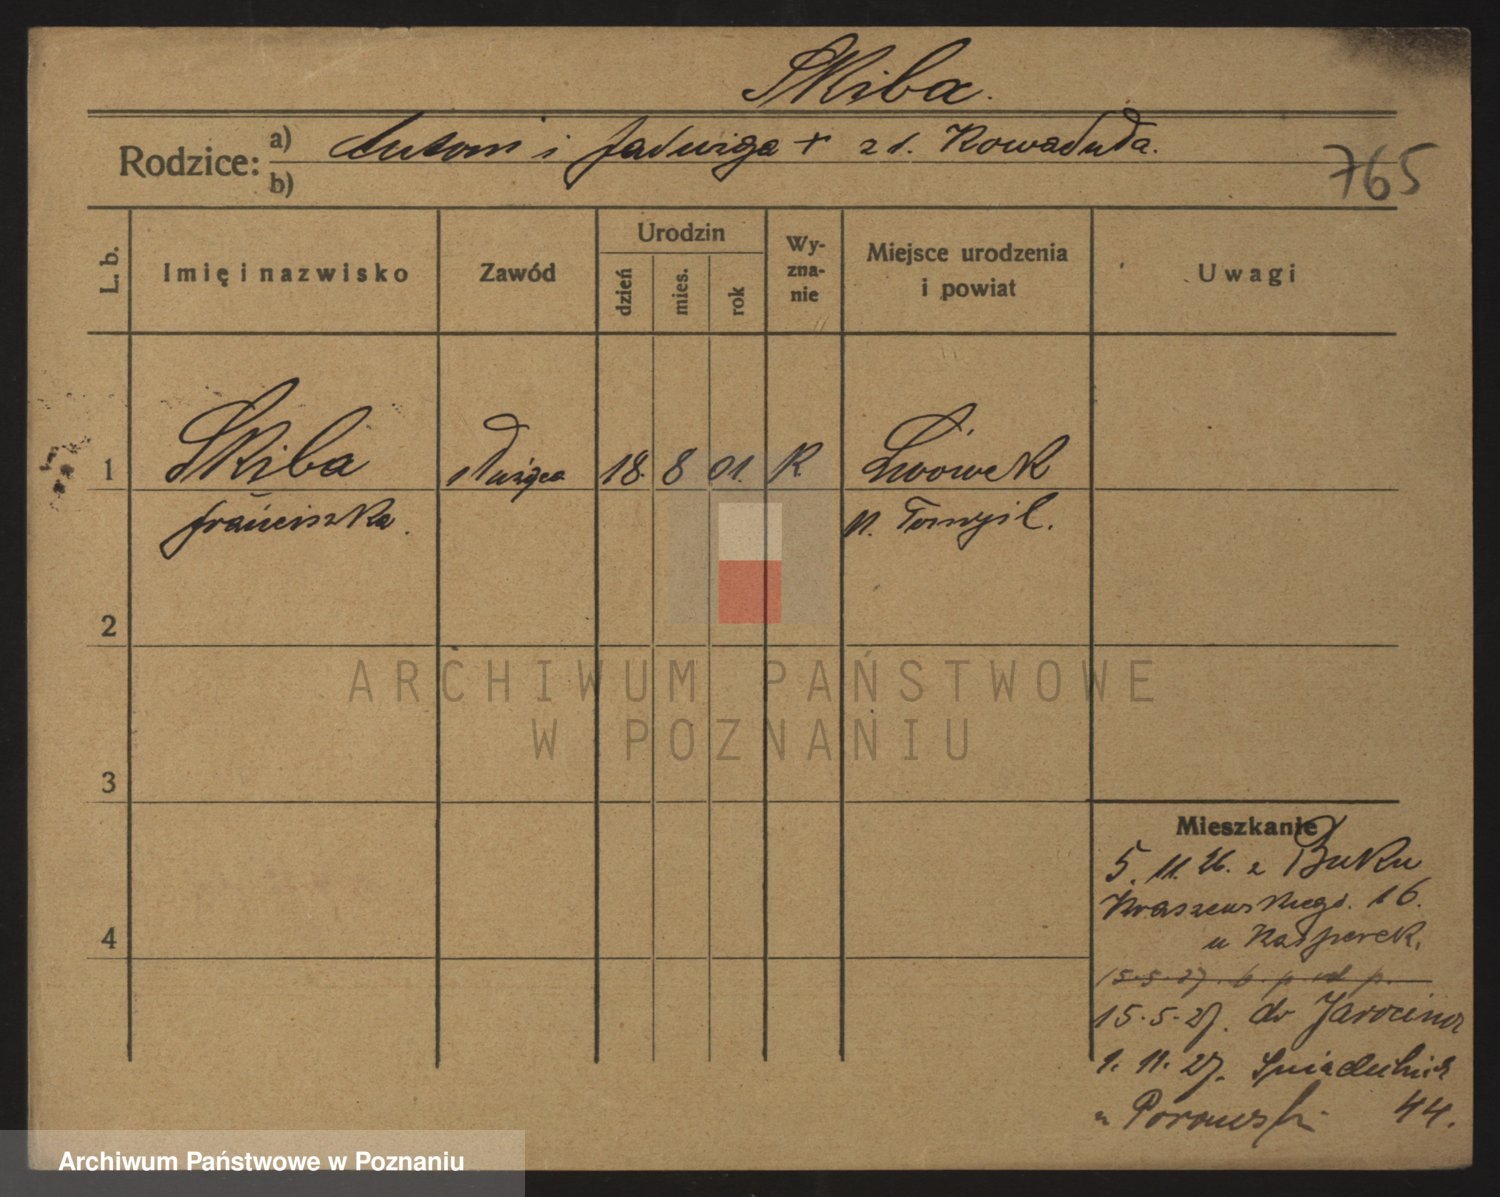 Skiba.
Rodzice: a) Antoni i Jadwiga + z d. Kowaduda.
b)
765
L. b.
Imię i nazwisko
Zawód
Urodzin
dzień
mies.
rok
Wy-
zna-
nie
Miejsce urodzenia
i powiat
Uwagi
1 Skiba służąca 18. 8 01. K. Lwówek
Franciszka. n. Tomyśl.
2
3
4
Mieszkanie
5. 11. 26. z Buku
Kraszewskiego. 16.
u Kasperek.
15.5.27. b. p. p.
15.5.27. do Jarocina
1. 11. 27. Śniadeckich
u Porowski 44.
ARCHIWUM PAŃSTWOWE
W POZNANIU
Archiwum Państwowe w Poznaniu